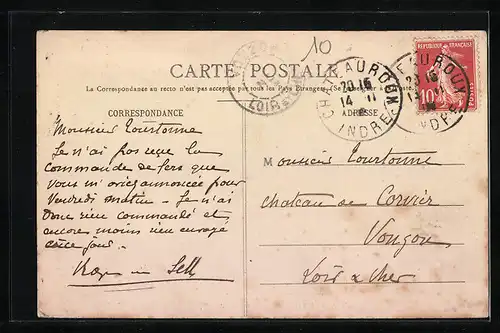 10
CARTE POSTALE
La Correspondance au recto n'est pas acceptée par tous les Pays Étrangers. (Se renseigner à la Poste)
CORRESPONDANCE
ADRESSE
CHATEAUROUX
20 15
14 11
INDRE
LOIR
REPUBLIQUE FRANÇAISE
10
Monsieur Tourtonne
Je n'ai pas reçu la
commande de fers que
vous m'aviez annoncée pour
Vendredi matin. Je n'ai
donc rien commandé et
encore moins rien envoyé
M onsieur Tourtonne
chateau de
Loir & Cher